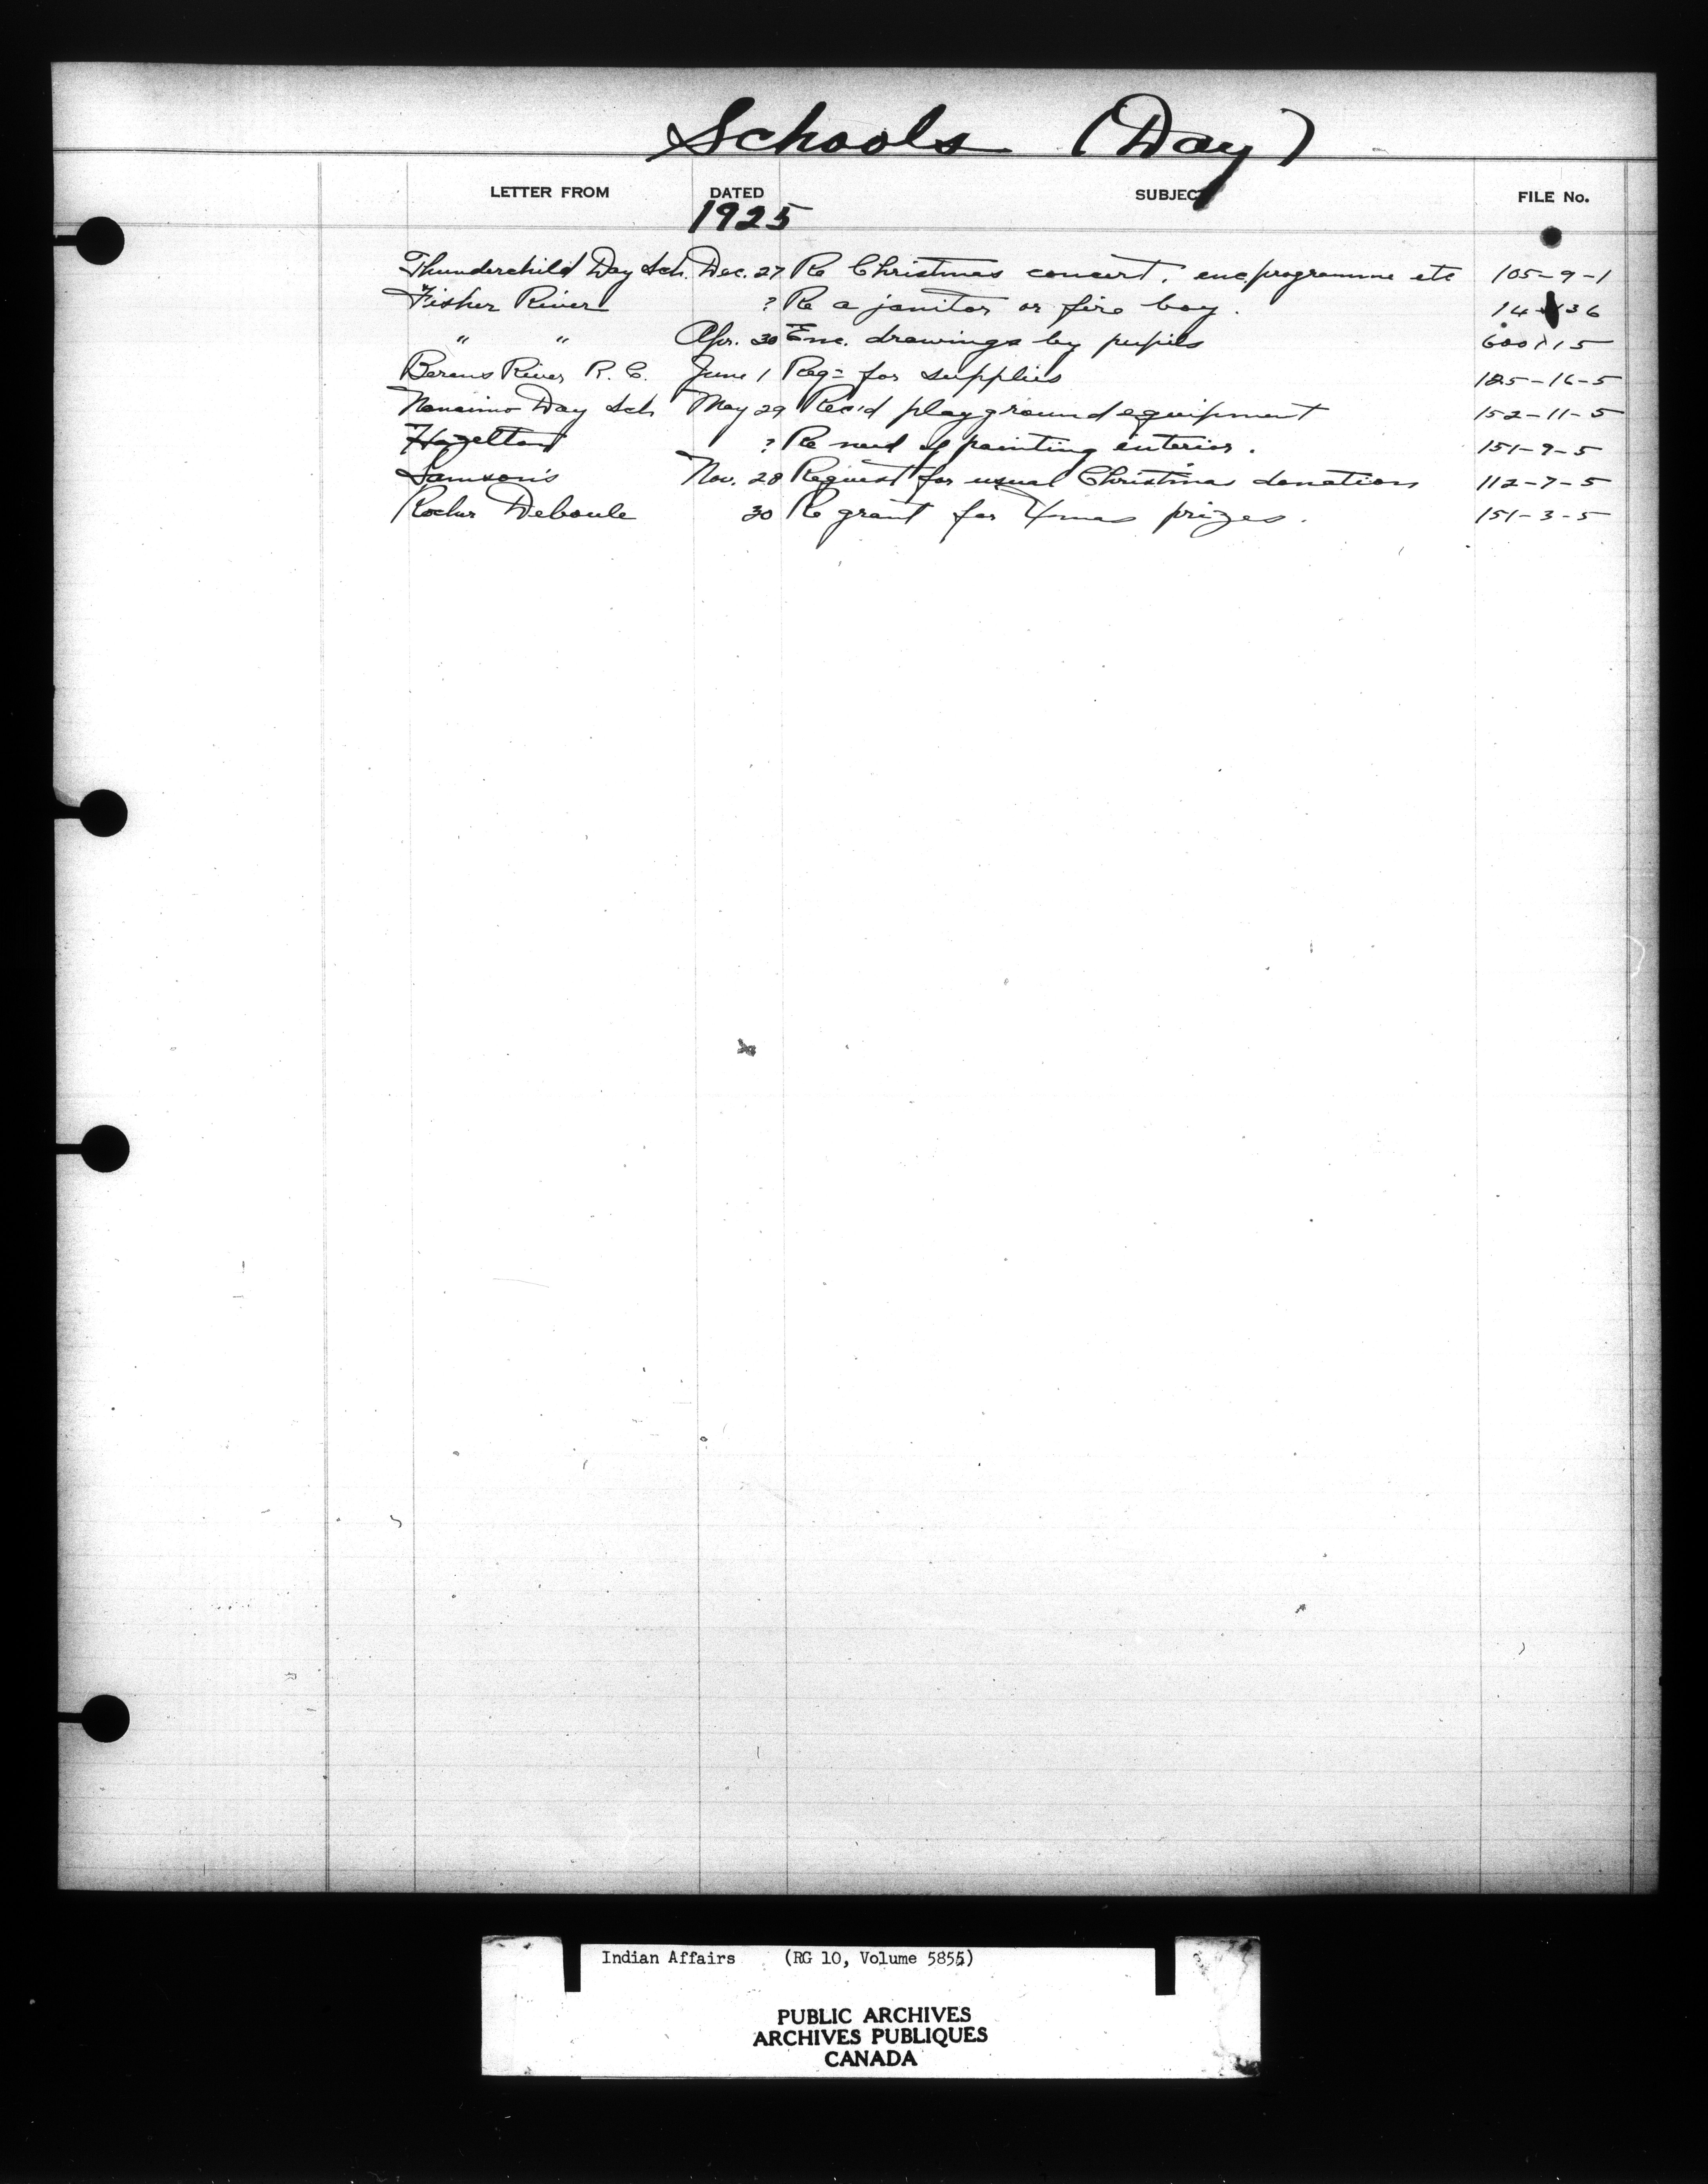 Schools (Day)
LETTER FROM DATED SUBJECT FILE No.
1925
Thunderchild Day Sch. Dec. 27 Re Christmas concert. enc. programme etc 105-9-1
Fisher River ? Re a janitor or fire boy. 14 36
" " Apr. 30 Enc. drawings by pupils 600 15
Berens River R. C. June 1 Req= for supplies 185-16-5
Nanaimo Day Sch May 29 Rec'd playground equipment 152-11-5
Hazelton ? Re need of painting interior. 151-9-5
Samson's Nov. 28 Request for usual Christmas donation 112-7-5
Rocher Deboule 30 Re grant for Xmas prizes. 151-3-5
Indian Affairs (RG 10, Volume 5855)
PUBLIC ARCHIVES
ARCHIVES PUBLIQUES
CANADA